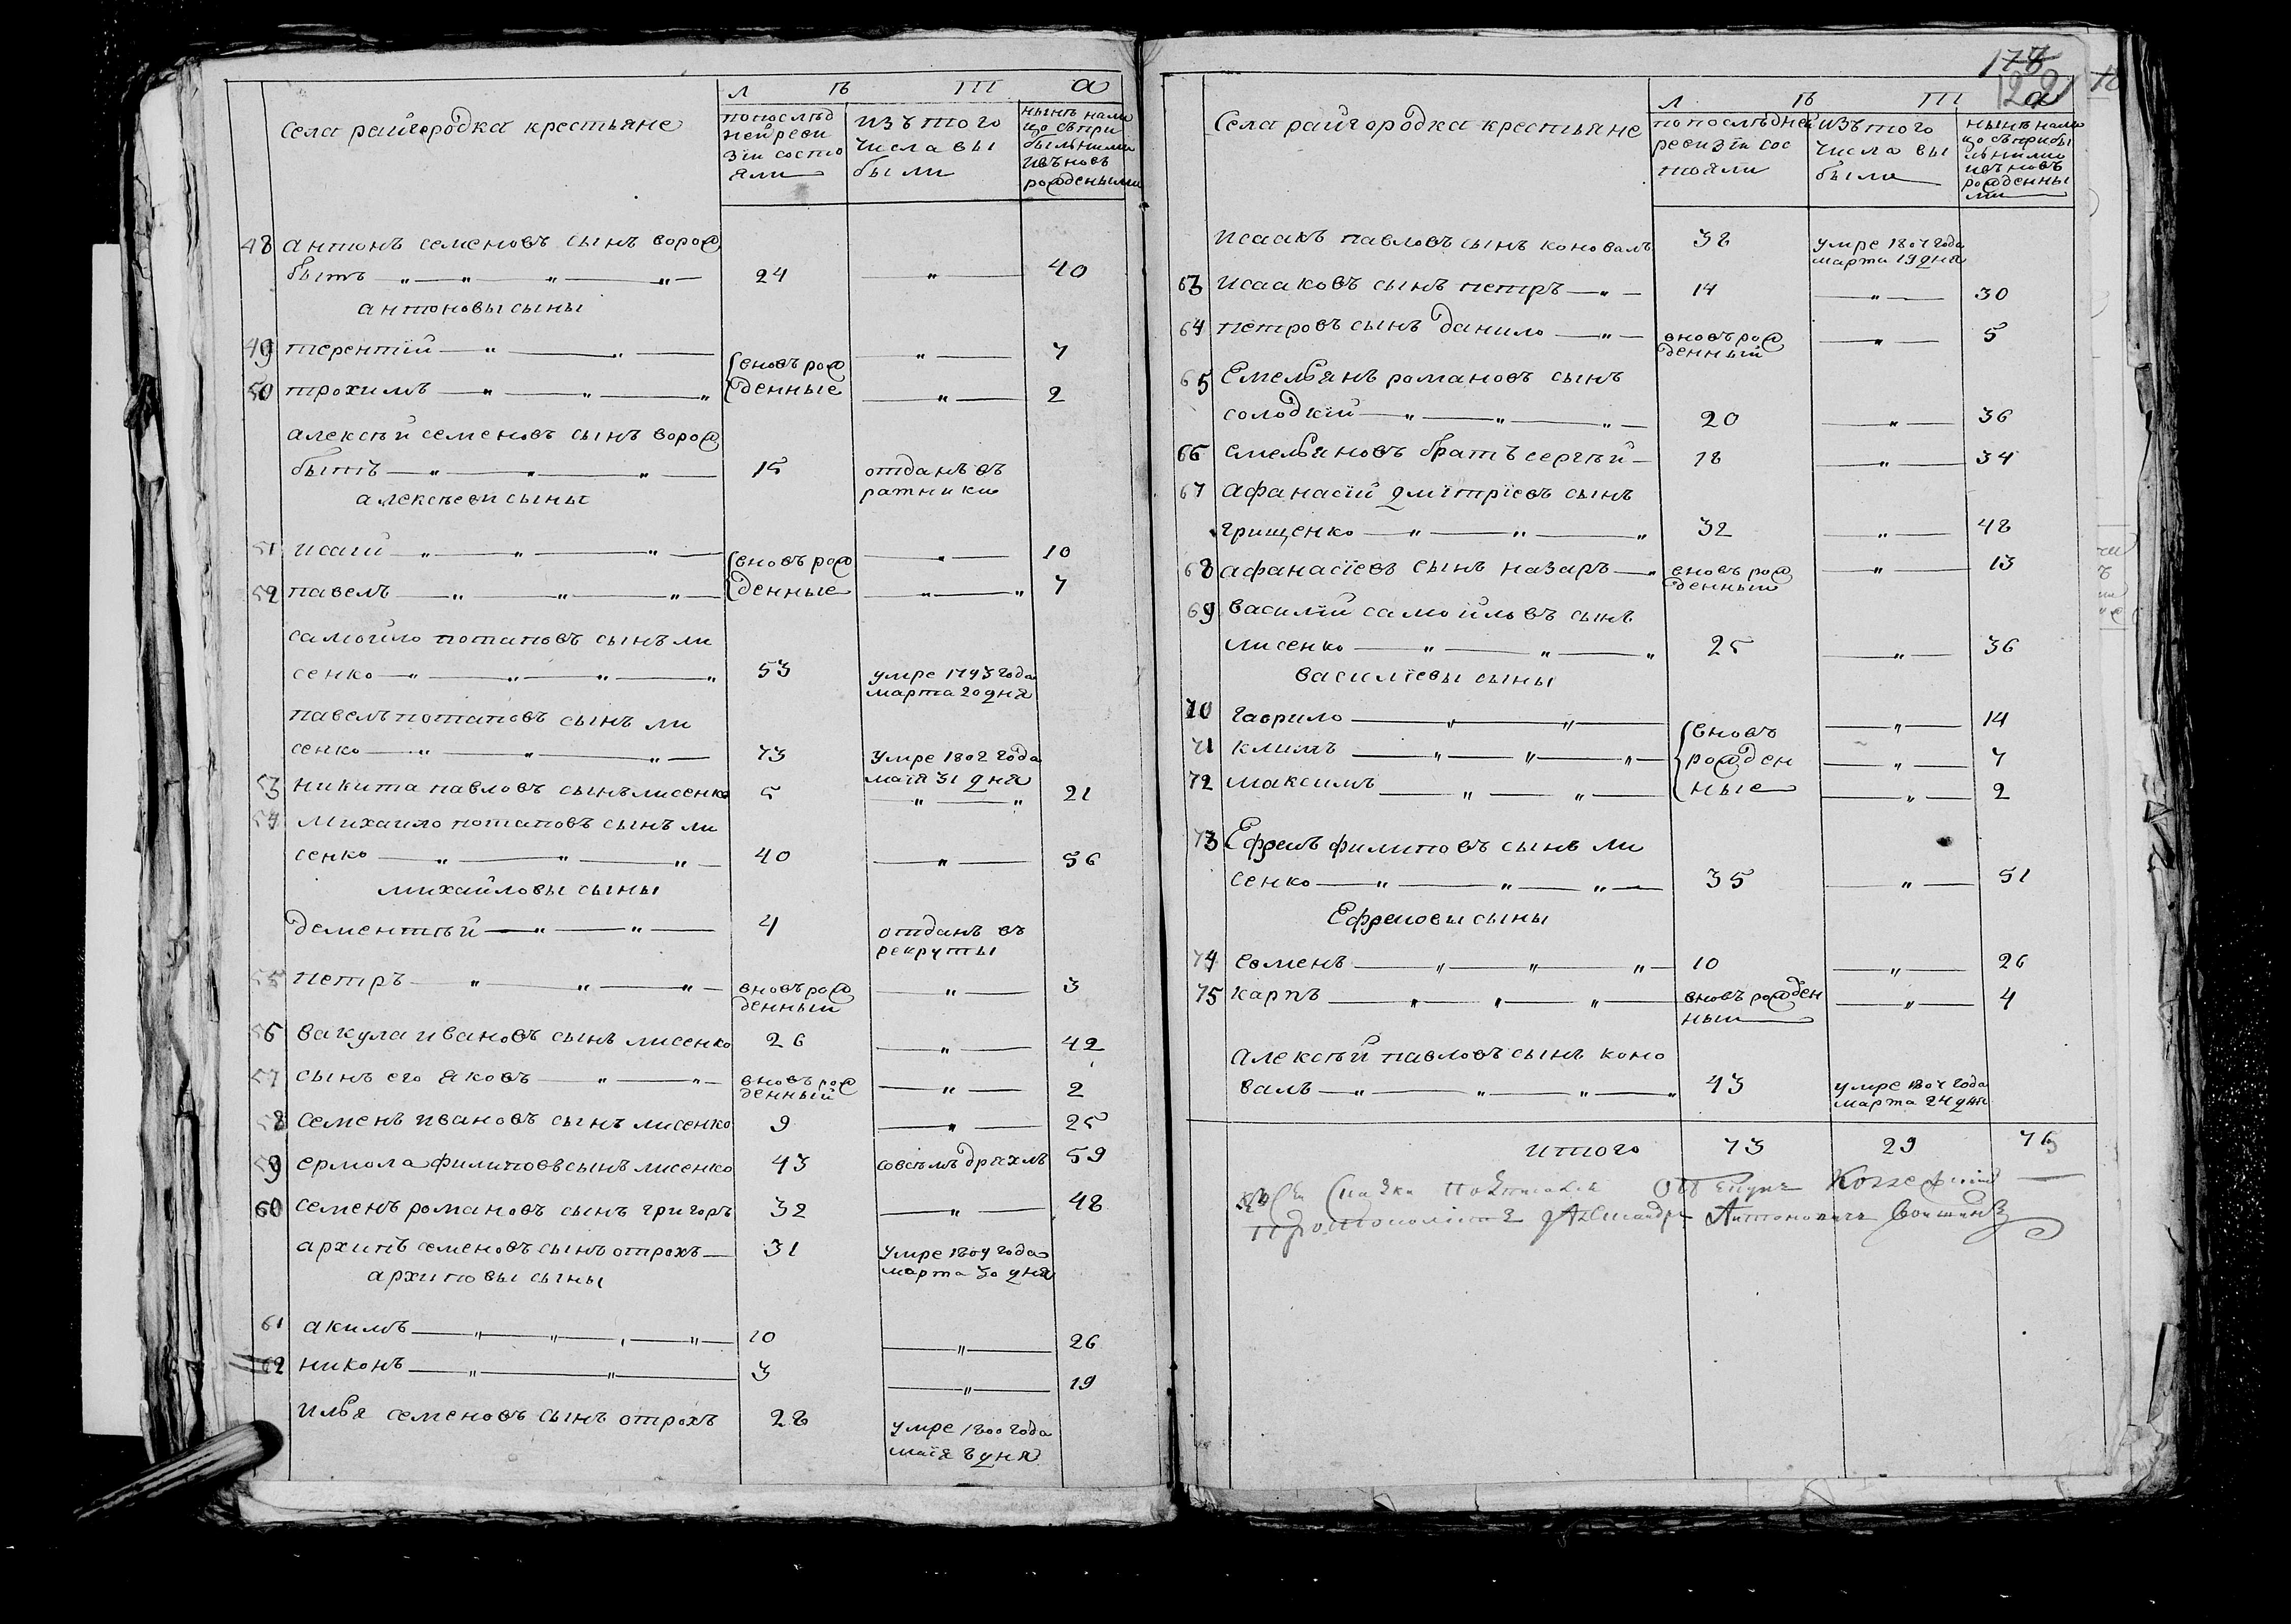 л ѣ т а
села райгородка крестьяне
по послѣд
ней реви
зіи состо
яли
изъ того
числа вы
были
нынѣ нали
цо съ при
былыми
и вновь
рожденными
48 антонъ семеновъ сынъ ворож
бытъ 24 40
антоновы сыны
49 терентій вновь рож 7
50 трохимъ денные 2
алексѣй семеновъ сынъ ворож
бытъ 15 отданъ въ
ратники
алексѣеви сыны
51 исай вновь рож 10
52 павелъ денные 7
самойло потаповъ сынъ ли
сенко 53 умре 1793 года
марта 20 дня
павелъ потаповъ сынъ ли
сенко 73 умре 1802 года
маія 31 дня
53 никита павловъ сынъ лисенко 5 21
54 михаило потаповъ сынъ ли
сенко 40 56
михайловы сыны
дементѣй 4 отданъ въ
рекруты
55 петръ вновь рож 3
денный
56 вакула ивановъ сынъ лисенко 26 42
57 сынъ его яковъ вновь рож 2
денный
58 семенъ ивановъ сынъ лисенко 9 25
59 ермола филиповъ сынъ лисенко 43 совсѣмъ дряхлъ 59
60 семенъ романовъ сынъ григоръ 32 48
архипъ семеновъ сынъ отрохъ 31 умре 1809 года
марта 30 дня
архиповы сыны
61 акимъ 10 26
62 никонъ 3 19
илья семеновъ сынъ отрохъ 28 умре 1800 года
маія 8 дня
178
л ѣ т а
Села райгородка крестьяне
по послѣдней
ревизіи сос
тояли
изъ того
числа вы
были
нынѣ нали
цо съ прибы
лыми
и вновь
рожденны
ми
исаакъ павловъ сынъ коновалъ 38 умре 1807 года
марта 19 дня
63 исааковъ сынъ петръ 14 30
64 петровъ сынъ данило вновь рож 5
денный
65 Емельянъ романовъ сынъ
солодкій 20 36
66 емельяновъ братъ сергѣй 18 34
67 афанасій дмітріевъ сынъ
грищенко 32 48
68 афанасіевъ сынъ назаръ вновь рож 13
денный
69 василій самойлавъ сынъ
лисенко 25 36
василіевы сыны
70 гаврило вновь 14
71 климъ рожден 7
72 максимъ ные 2
73 Ефремъ филиповъ сынъ ли
сенко 35 51
Ефремовы сыны
74 семенъ 10 26
75 карпъ вновь рожден 4
ный
алексѣй павловъ сынъ коно
валъ 43 умре 1807 года
марта 24 дня
итого 73 29 75